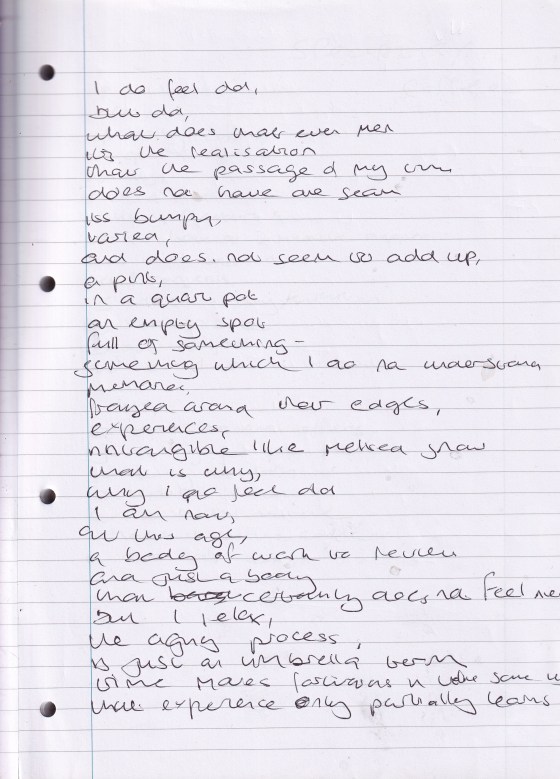 I do feel old,
but old,
what does that even mean
its the realisation
that the passage of my own
does not have one seam
its bumpy,
varied,
and does not seem to add up,
a pint,
in a quart pot
an empty spot
full of something -
something which I do not understand
memories
frayed around their edges,
experiences,
intangible like melted snow
that is why,
why I do feel old
I am now,
at this age,
a body of work to review
and just a body
that certainly does not feel
but I relax,
the aging process,
is just an umbrella term
time moves forward in the same
that experience only partially learns